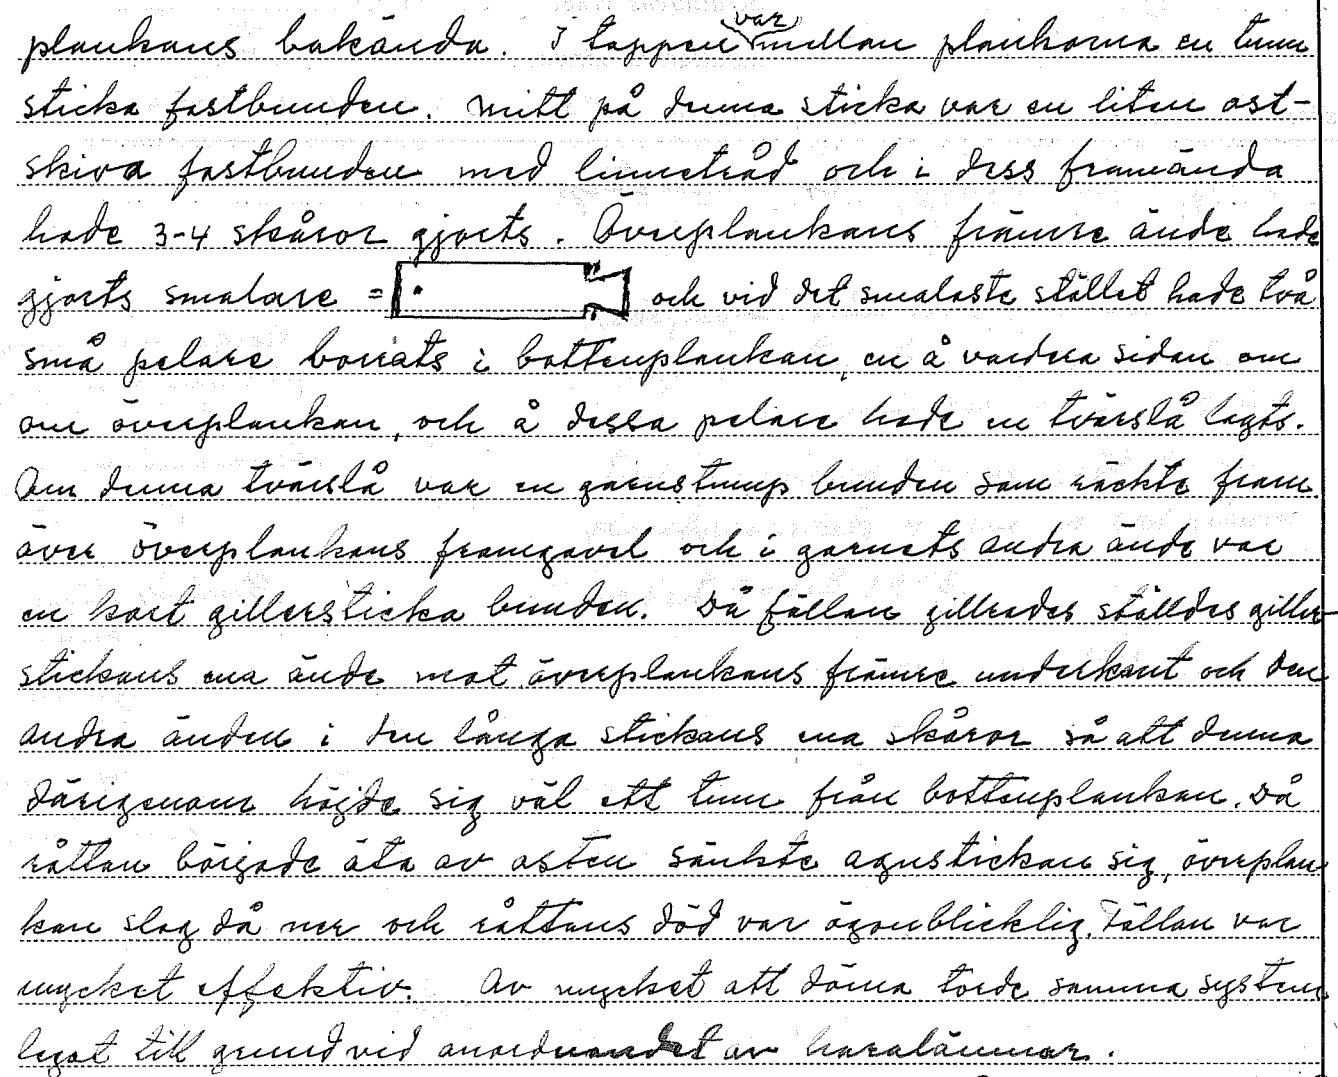 plankans bakända. I tappen var mellan plankorna en tunn
sticka fastbunden. Mitt på denna sticka var en liten ost-
skiva fastbunden med linnetråd och i dess framända
hade 3-4 skåror gjorts. Överplankans främre ände hade
gjorts smalare = och vid det smalaste stället hade två
små pelare borrats i bottenplankan, en å vardera sidan om
om överplankan, och å dessa pelare hade en tvärslå lagts.
Om denna tvärslå var en garnstump bunden som räckte fram
över överplankans framgavel och i garnets andra ände var
en kort gillersticka bunden. Då fällan gillrades ställdes giller-
stickans ena ände mot överplankans främre underkant och den
andra änden i den långa stickans ena skåror så att denna
därigenom höjde sig väl ett tum från bottenplankan. Då
råttan började äta av osten sänkte agnstickan sig, överplan
kan slog då ner och råttans död var ögonblicklig. Fällan var
mycket effektiv. Av mycket att döma torde samma system
legat till grund vid anordnandet av haralämmar.